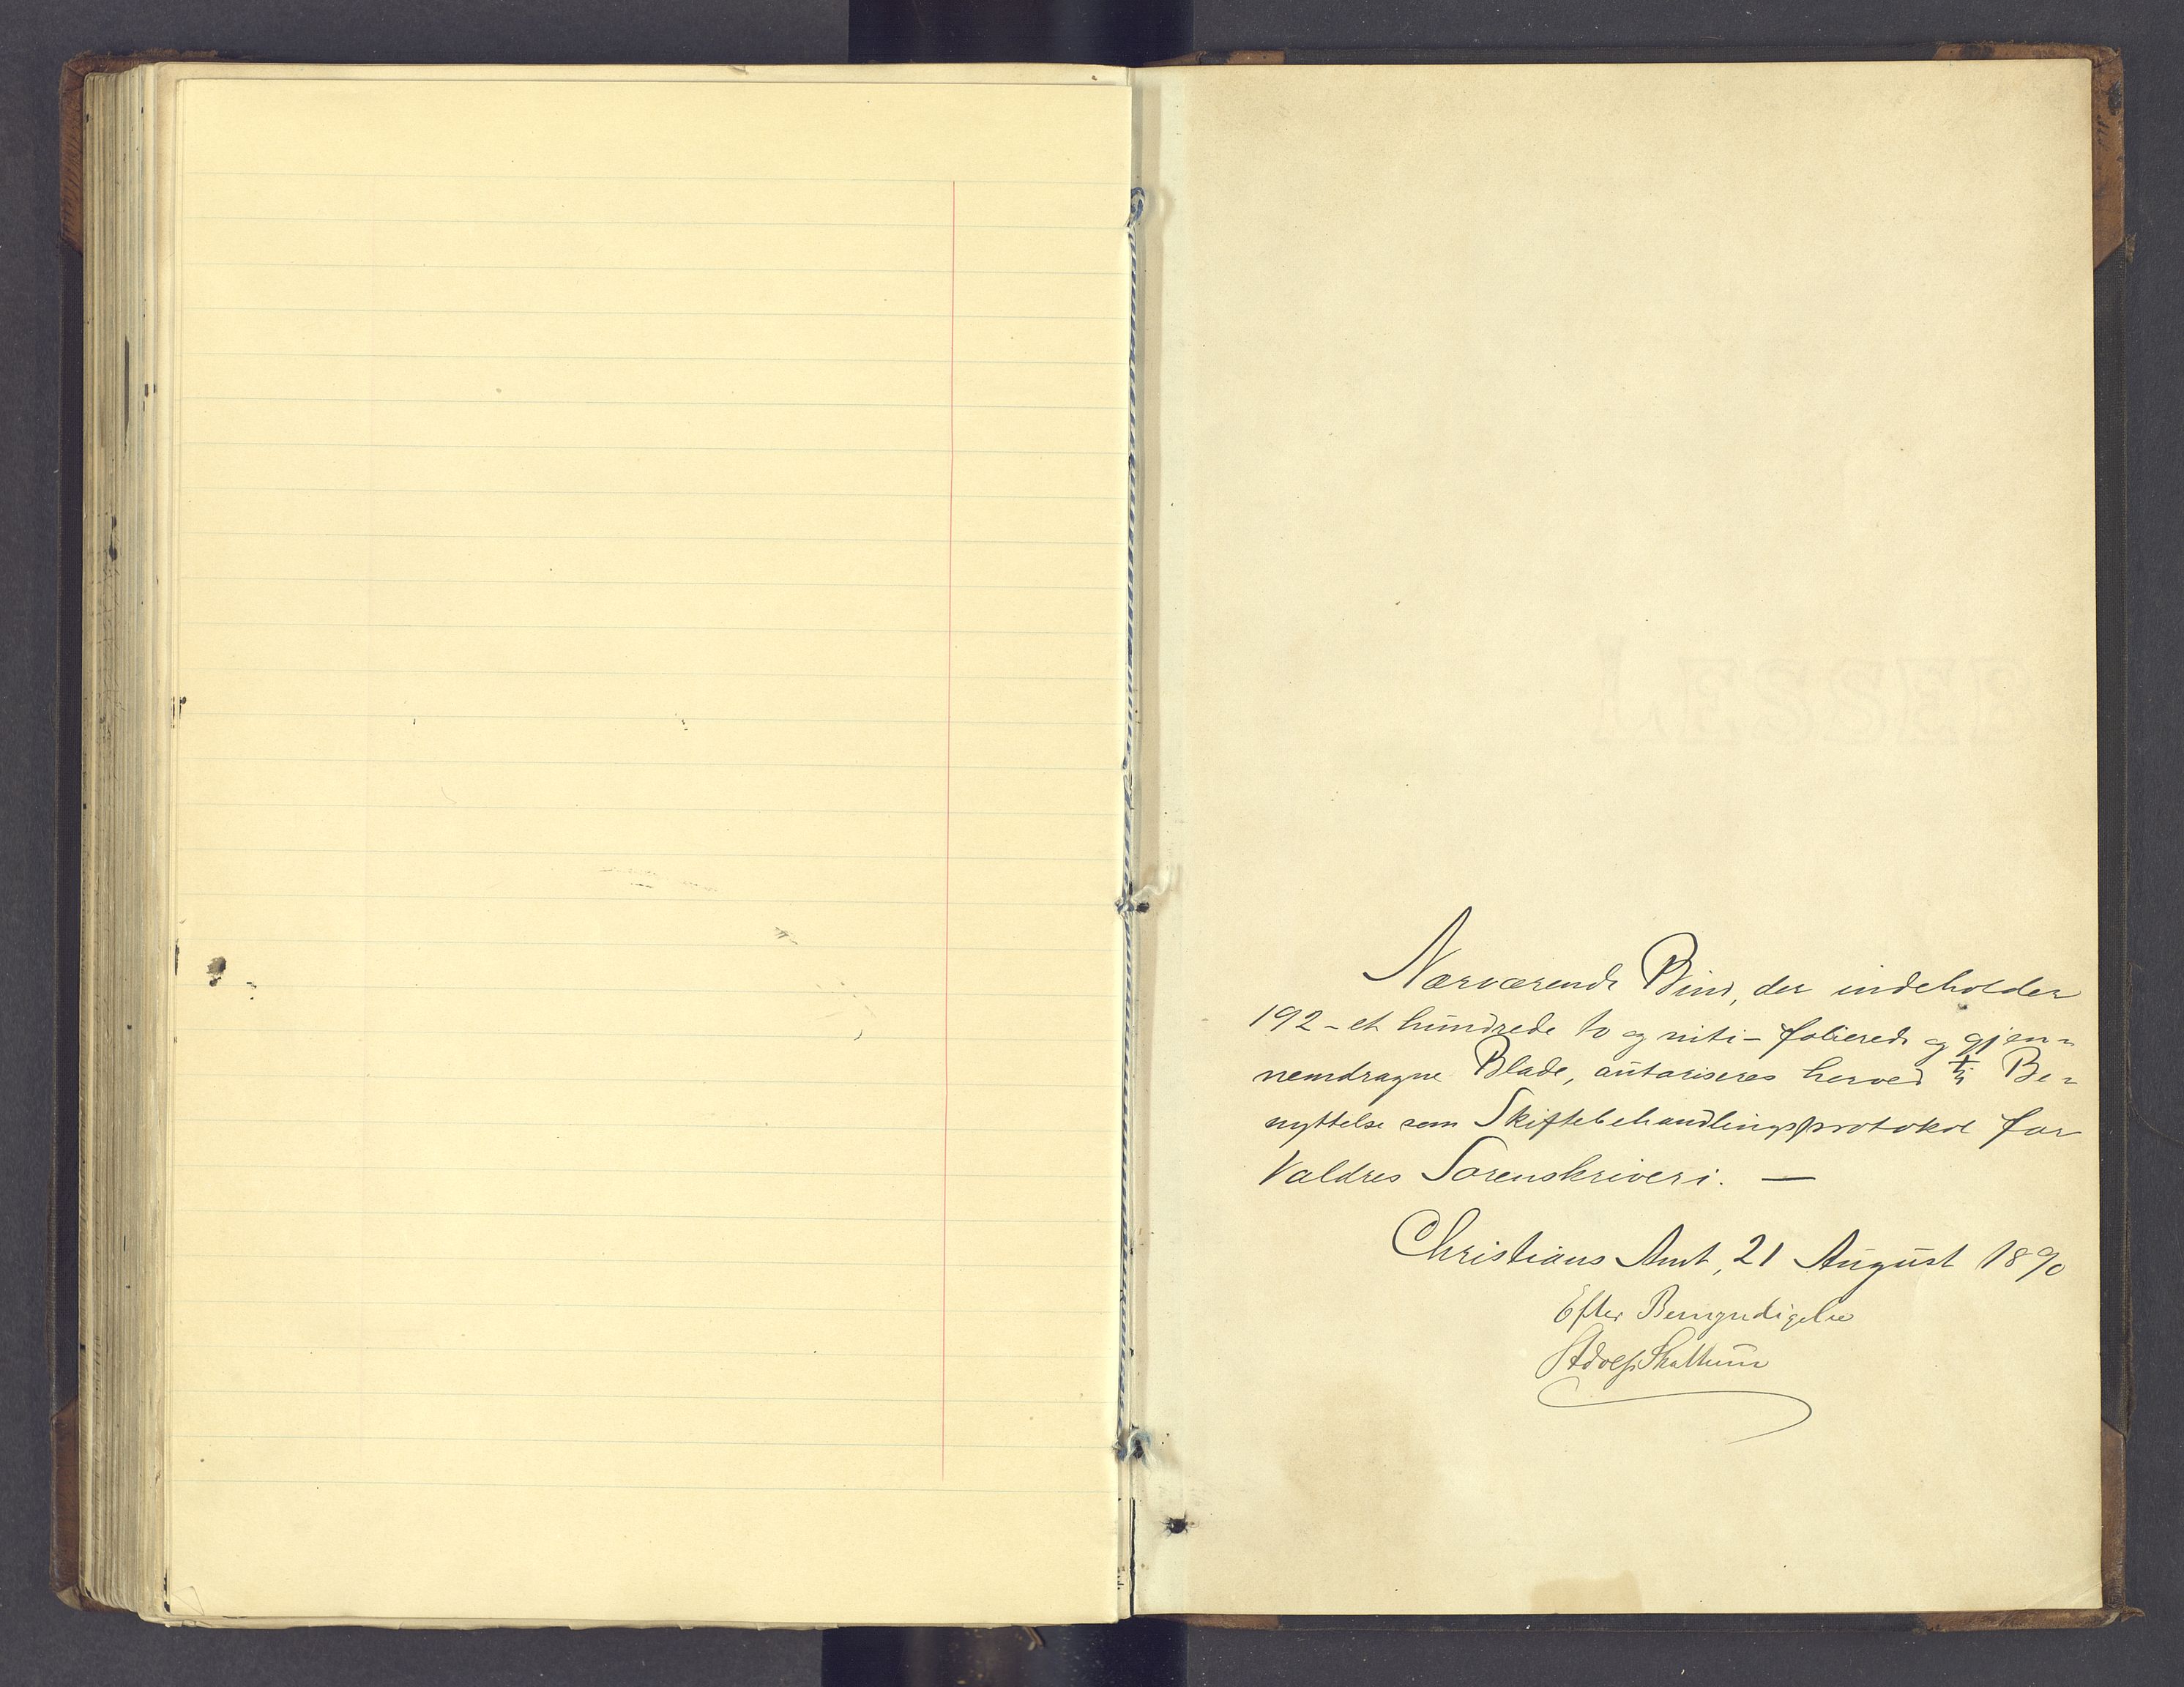 Nærværende Bind, der indeholder
192 - et hundrede to og niti - folierede og gjen-
nemdragne Blade, autoriseres herved til Be-
nyttelse som Skiftebehandlingsprotokol for
Valdres Sorenskriveri. —
Christians Amt, 21 August 1890
Efter Bemyndigelse
Adolf Skattum